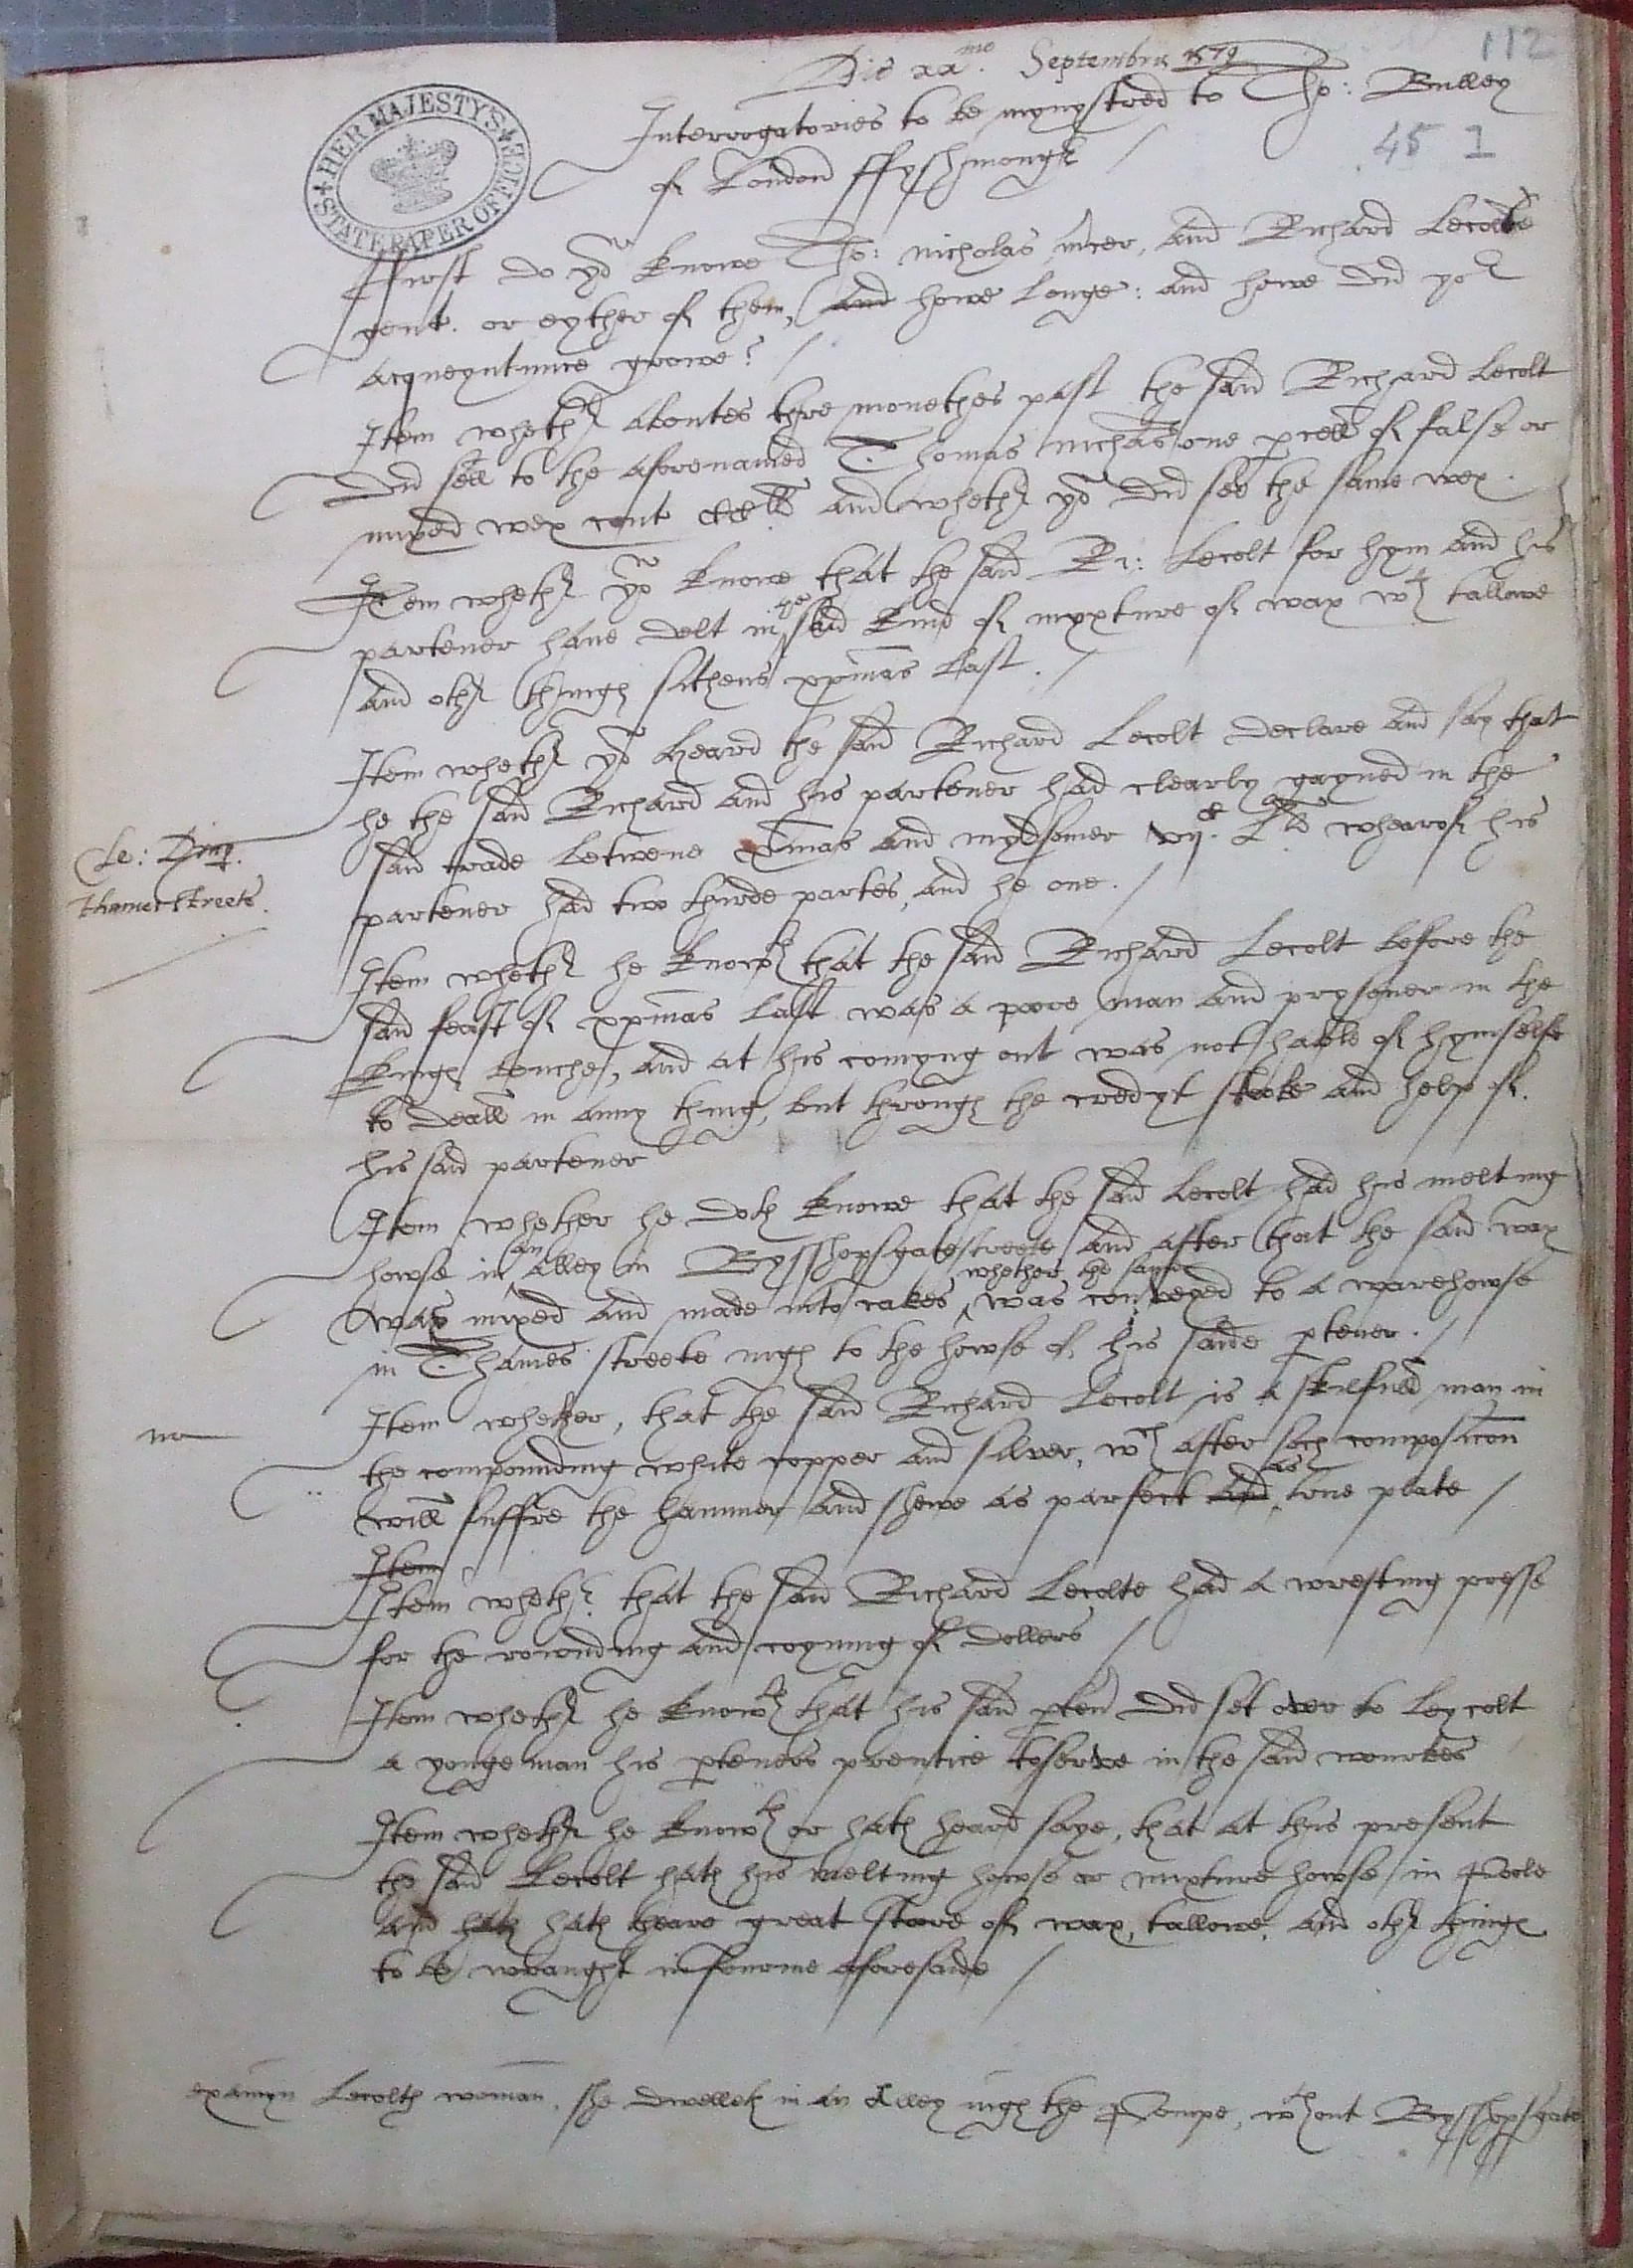 112
Die xxmo. Septembris 1579
Interrogatories to be mynystred to Tho: Bulley
45 1
of London ffyshmong
HER MAJESTY'S STATE PAPER OFFICE
ffirst do yo knowe Tho: nicholas mcer, and Richard Lecolte
gent. or eyther of them, and howe longe: and howe did yor
acqueyntunce growe? /
Item wheth aboutes thre monethes past the said Richard Lecolt
did sell to the aforenamed Thomas nichas one pcell of false or
mixed wex cont lb and wheth yo did see the same wex.
Item wheth yo knowe that the said Ri: Lecolt for hym and his
partener have delt in the said kind of myxture of wax wt tallowe
and oth things sithens xpmas last. /
Item wheth yo heard the said Richard Lecolt declare and say that
he the said Richard and his partener had clearly gayned in the
said trade betwene xmas and mydsomer vij. C lb whearof his
partener had two thirde partes, and he one. /
Le: Ding.
Thames streete.
Item wheth he knowth that the said Richard Lecolt before the
said feast of xpmas last was a poore man and prysoner in the
kings benche, and at his comyng out was not hable of hymselfe
to deall in anny thing, but through the credyt stocke and help of.
his said partener
Item whether he doth knowe that the said Lecolt had his melting
howse in an Alley in Bysshopsgatestreete and after that the said wax
was mixed and made into cakes whether the same was conveyed to a warehowse
in Thames streete nigh to the howse of his saide ptener. /
no
Item whether, that the said Richard Lecolt is a skilfull man in
the compounding white copper and silver, wch after soch composicon
will suffre the hammer and shewe as parfect and as trne plate /
Item
Item wheth that the said Richard Lecolte had a wresting presse
for the rownding and coyning of dollers /
Item wheth he knowth that his said pten did set over to Leycolt
a yonge man his pteners prentice to serve in the said wourkes
Item wheth he knowth or hath heard saye, that at this present
the said Lecolt hath his melting howse or mixture howse in Poole
and hath hath theare great stoore of wax, tallowe, and oth things
to be wraught in fourme aforesaide /
examyn Lecolts woman, she dwelleth in an Alley nigh the Pompe, wthout Bysshopsgate